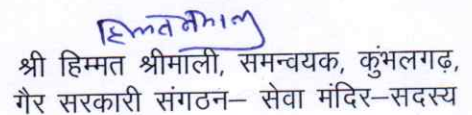 हिम्मत श्रीमाली
श्री हिम्मत श्रीमाली, समन्वयक, कुंभलगढ़,
गैर सरकारी संगठन– सेवा मंदिर–सदस्य